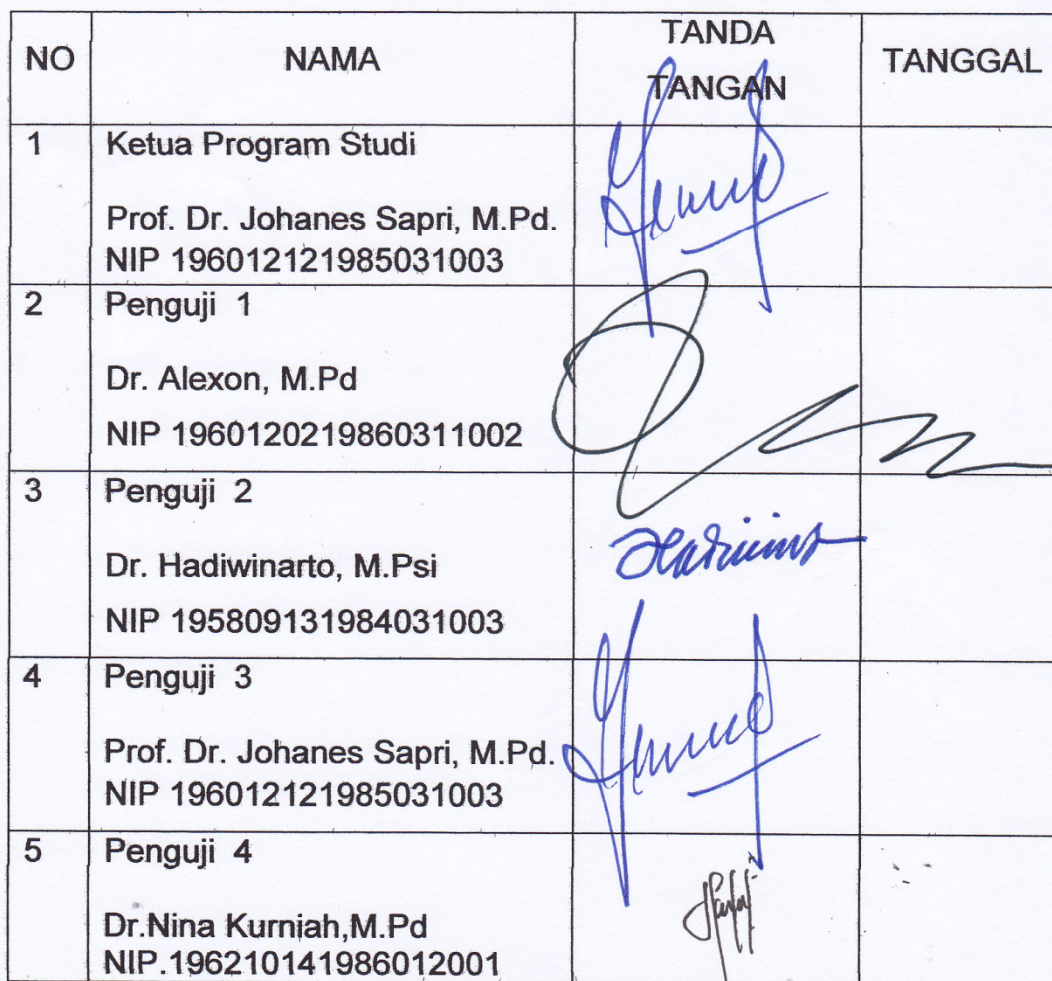 NO NAMA TANDA TANGAN TANGGAL
1 Ketua Program Studi
Prof. Dr. Johanes Sapri, M.Pd.
NIP 196012121985031003
2 Penguji 1
Dr. Alexon, M.Pd
NIP 1960120219860311002
3 Penguji 2
Dr. Hadiwinarto, M.Psi
NIP 195809131984031003
4 Penguji 3
Prof. Dr. Johanes Sapri, M.Pd.
NIP 196012121985031003
5 Penguji 4
Dr.Nina Kurniah,M.Pd
NIP.196210141986012001